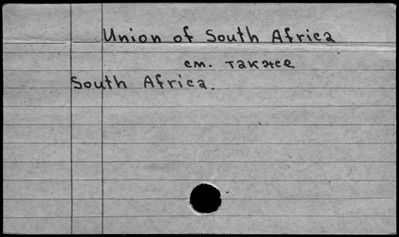 Union of South Africa
см. также
South Africa.